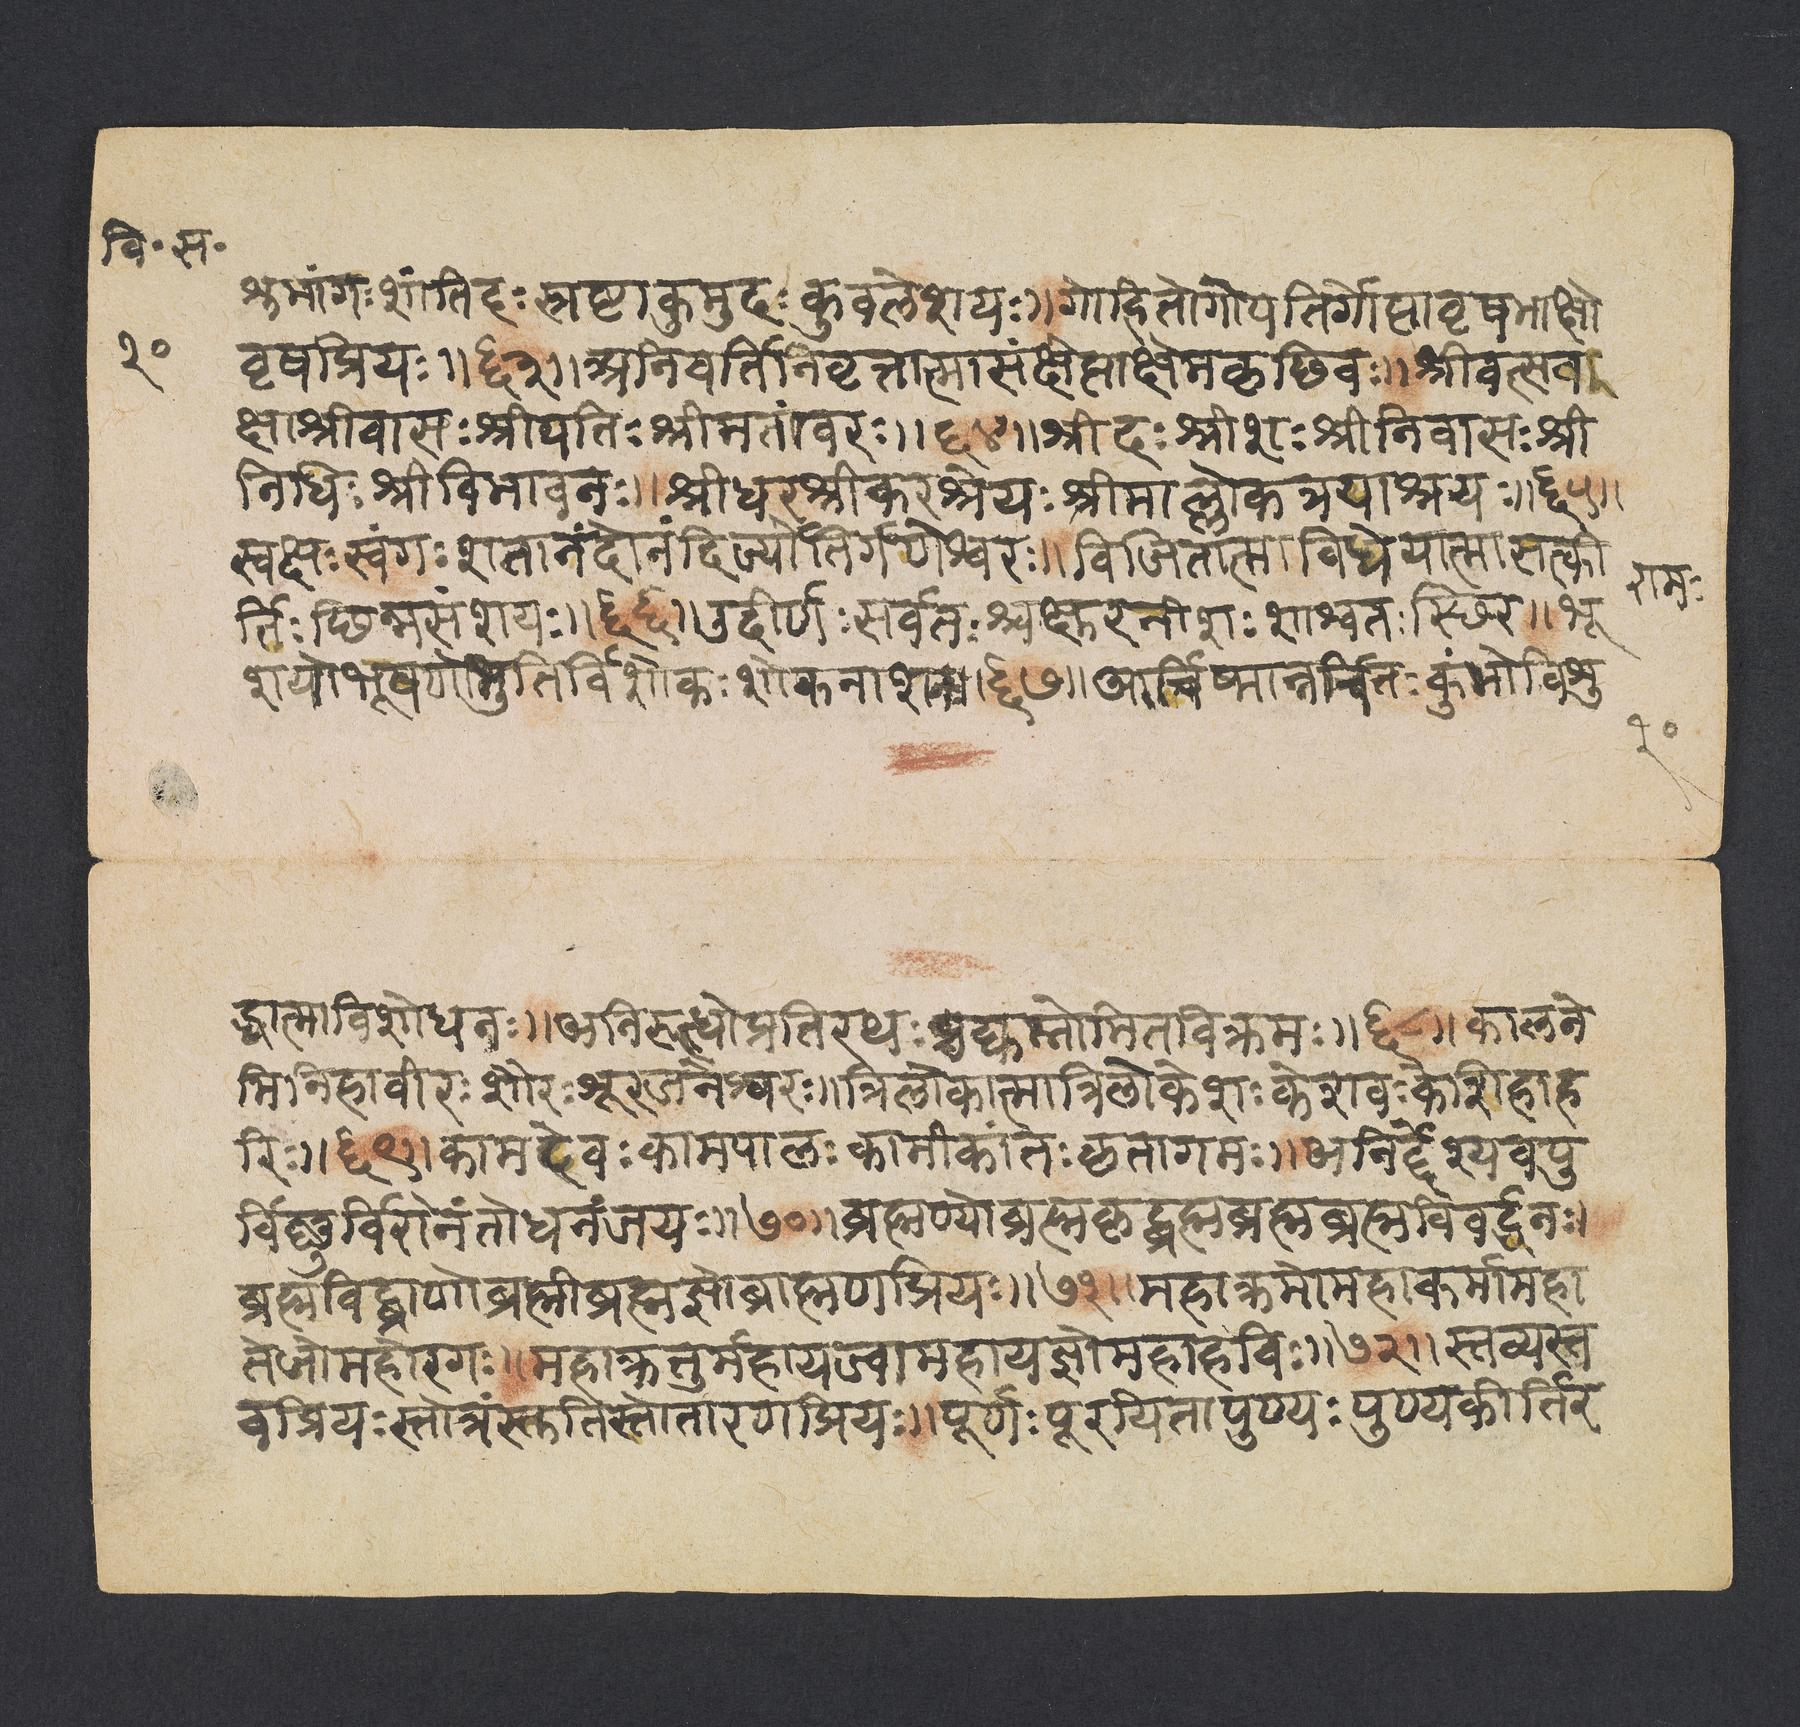 वि॰ स॰
१०
शुभांगः शांतिदः स्रष्टा कुमुदः कुवलेशयः ॥ गोहितो गोपतिर्गोप्ता वृषभाक्षो
वृषप्रियः ॥ ६३ ॥ अनिवर्ति निवृत्तात्मा संक्षेप्ता क्षेमकृछिवः ॥ श्रीवत्सव
क्षा श्रीवासः श्रीपतिः श्रीमतांवरः ॥ ६४ ॥ श्रीदः श्रीशः श्रीनिवासः श्री
निधिः श्रीविभावनः ॥ श्रीधरश्रीकरश्रेयः श्रीमाल्लोकत्रयाश्रयः ॥ ६५ ॥
स्वक्षः स्वंगः शतानंदो नंदिर्ज्योतिर्गणेश्वरः ॥ विजितात्मा विधेयात्मा सत्की
र्तिः छिन्नसंशयः ॥ ६६ ॥ उदीर्णः सर्वतश्चक्षुरनीशः शाश्वतः स्छिर ॥ भू
शयो भूषणो भुतिर्विशोकः शोकनाशन ॥ ६७ ॥ आर्चिष्मानर्चितः कुंभो विशु
रामः
१०
द्धात्मा विशोधनः ॥ अनिरुत्धो प्रतिरथः प्रद्युम्नोमितविक्रमः ॥ ६८ ॥ कालने
मिनिहा वीरः शौरः शूरजनेश्वरः ॥ त्रिलोकात्मा त्रिलोकेशः केशवः केशिहा ह
रिः ॥ ६९ ॥ कामदेवः कामपालः कामी कांतः कृतागमः ॥ अनिर्द्देश्यवपु
र्विष्णुर्विरोनंतो धनंजयः ॥ ७० ॥ ब्रह्मण्यो ब्रह्मकृद्ब्रह्म ब्रह्म ब्रह्मविवर्द्धनः ।
ब्रह्मविद्ब्राणो ब्रह्मी ब्रह्मज्ञो ब्राह्मणप्रियः ॥ ७१ ॥ महाक्रमो महाकर्मा महा
तेजो महोरगः ॥ महाक्रतुर्महायज्वा महायज्ञो महाहविः ॥ ७२ ॥ स्तव्यस्त
वप्रियः स्तोत्रं स्तुतिस्तोता रणप्रियः ॥ पूर्णः पूरयिता पुण्यः पुण्यकीर्तिर